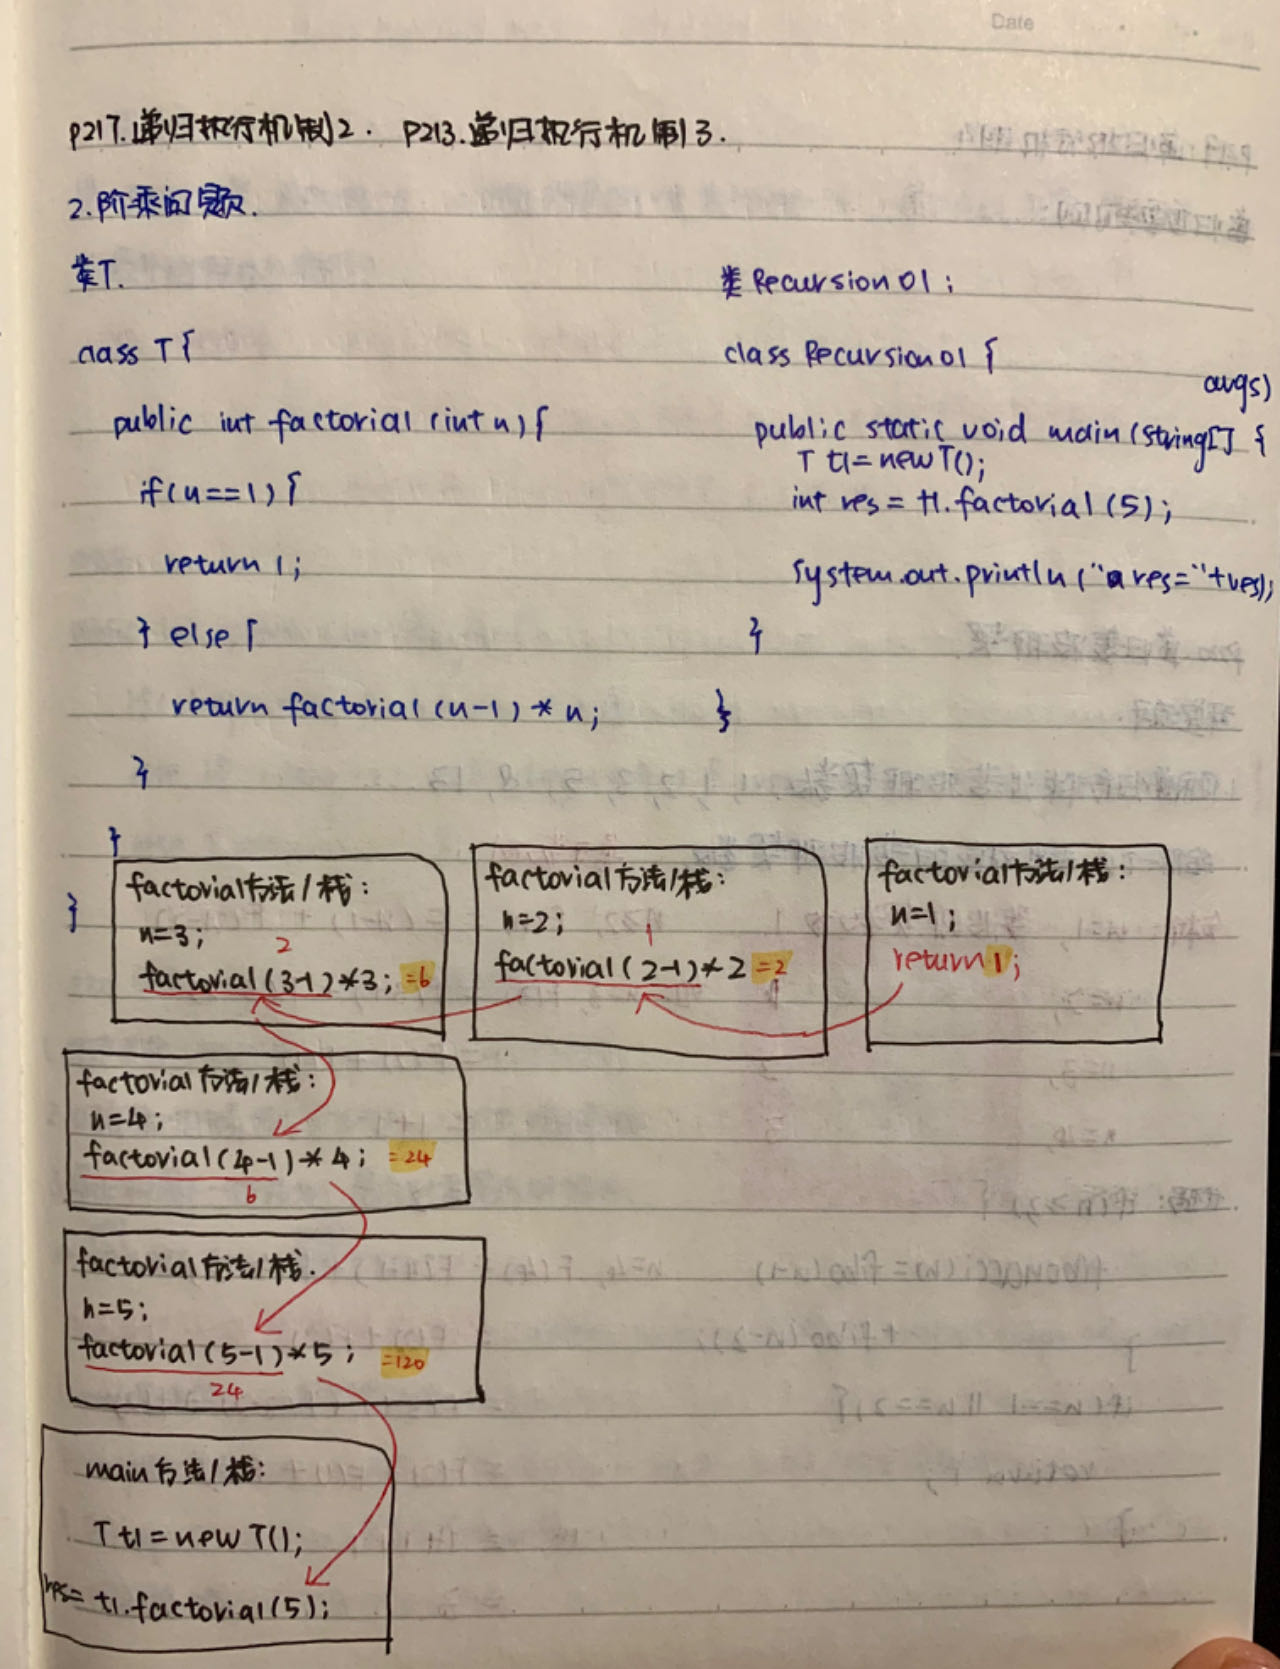 Date
P217.递归执行机制2. P213.递归执行机制3.
2.阶乘问题.
类T.
class T{
public int factorial (int n) {
if(n==1) {
return 1;
} else {
return factorial (n-1) * n;
}
}
}
类 Recursion01;
class Recursion01 {
public static void main (String[] args) {
T t1=new T();
int res = t1.factorial (5);
System.out.println ("res="+res);
}
}
factorial方法/栈:
n=3;
2
factorial(3-1)*3; =6
factorial方法/栈:
n=2;
1
factorial(2-1)*2 =2
factorial方法/栈:
n=1;
return 1;
factorial方法/栈:
n=4;
factorial(4-1)*4; =24
6
factorial方法/栈.
n=5;
factorial(5-1)*5; =120
24
main方法/栈:
T t1=new T();
res= t1.factorial(5);